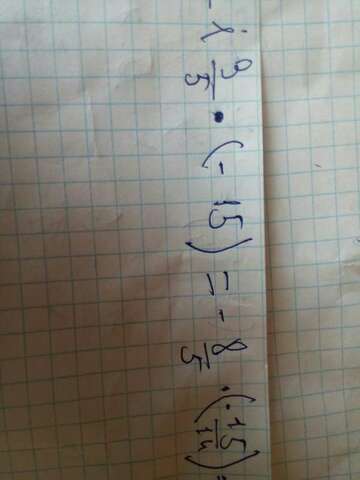 -1 3/5 · (-15) = - 8/5 · (-15/14) =